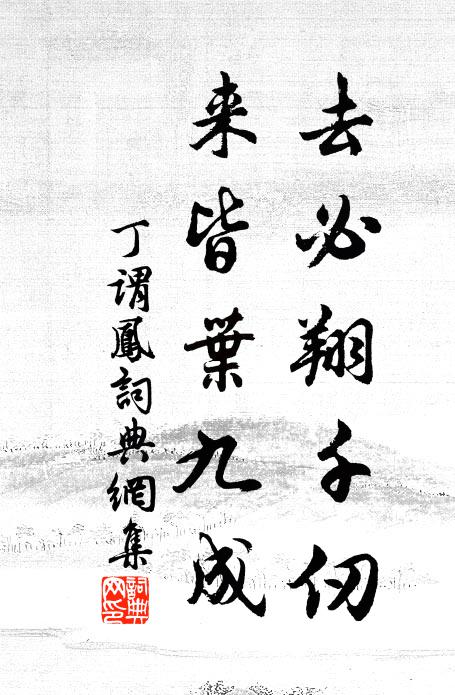 去必翔千仞
来皆葉九成
丁谓鳳詞典網集
詞典网印